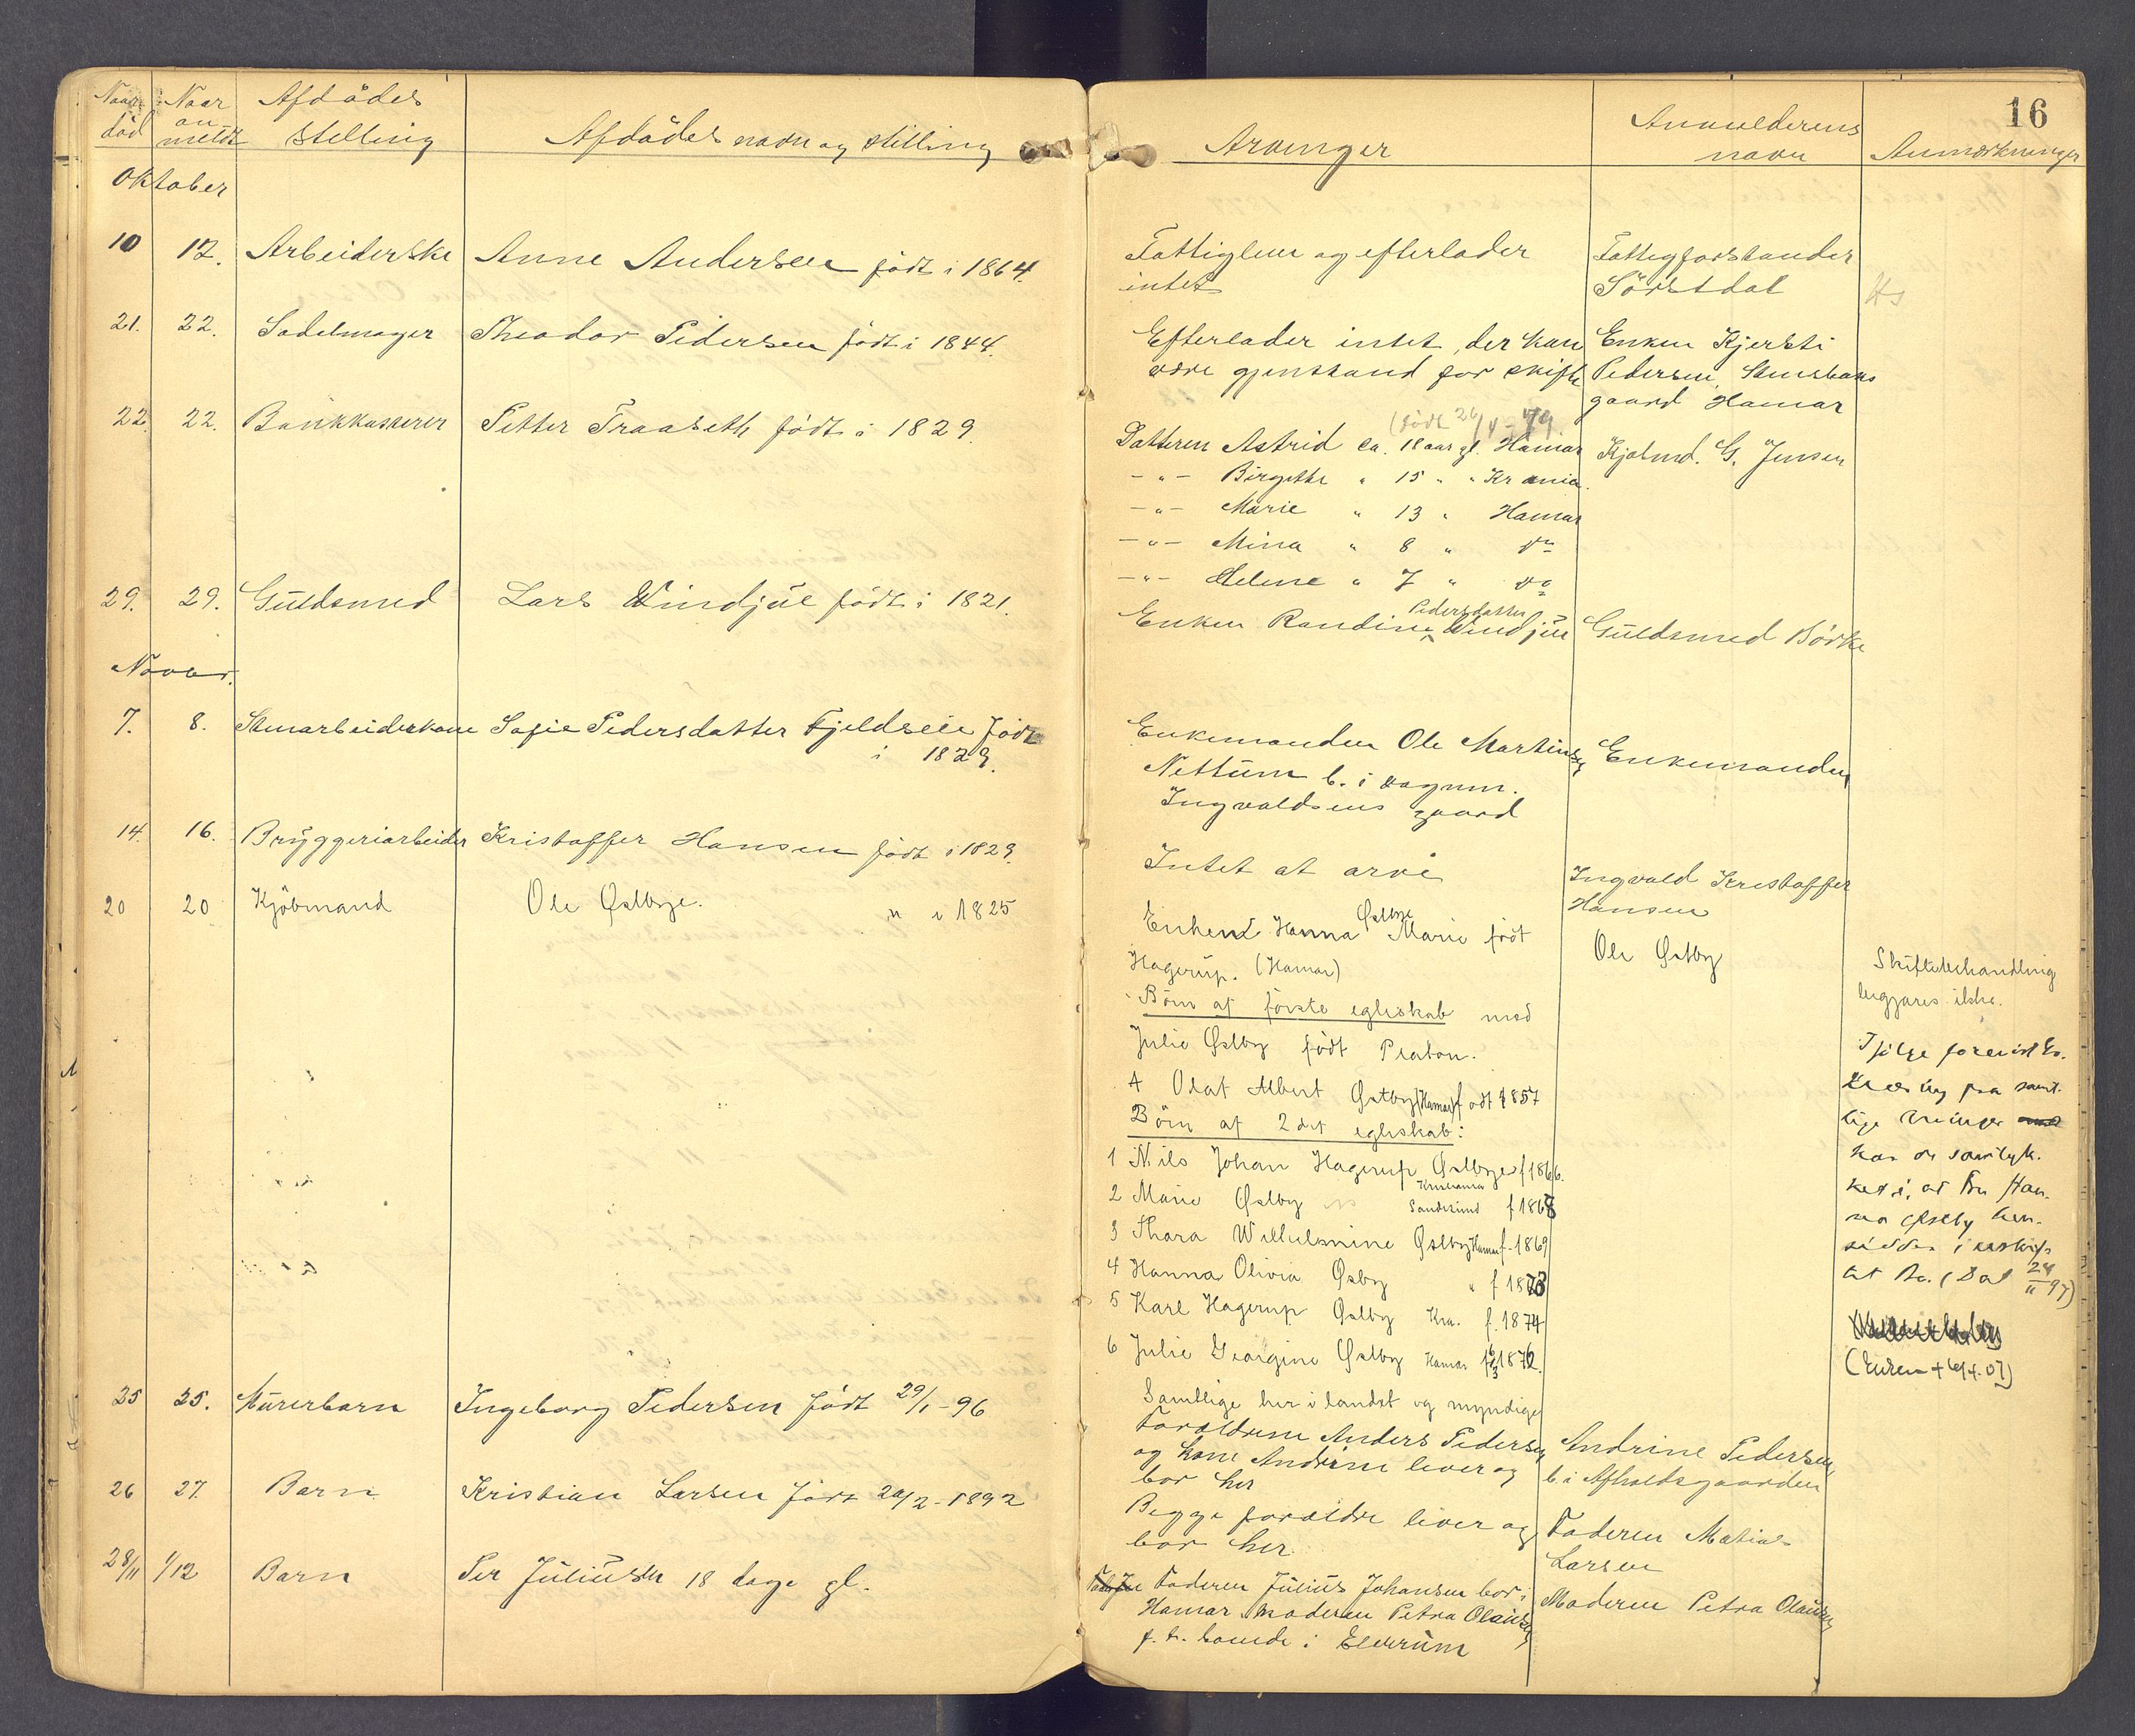 16
Naar død
Naar anmeldt
Afdødes stilling
Afdødes navn og stilling
Arvinger
Anmelderens navn
Anmerkninger
Oktober
10 12. Arbeiderske Anne Andersen født i 1864.
Fattiglem og efterlader
intet
Fattigforstander
Sørstdal
21. 22. Sadelmager Theodor Pedersen født i 1844.
Efterlader intet, der kan
være gjenstand for skifte
Enken Kjersti
Pedersen, Stensbaks
gaard Hamar
22. 22. Bankkasserer Petter Traaseth født i 1829.
(født 26/4-79
Datteren Astrid ca. 18 aar gl. Hamar
Kjøbmd. G. Jensen
-"- Birgitte " 15 " " Kr ania.
-"- Marie " 13 " Hamar
-"- Mina " 8 " do
-"- Helene " 7 " do
29. 29. Guldsmed Lars Windjue født i 1821.
Pedersdatter
Enken Randine Windjue
Guldsmed Børke
Novbr.
7. 8. Stenarbeiderkone Sofie Pedersdatter Fjeldseie født
i 1829.
Enkemanden Ole Martinsen
Nettum b. i vognm.
Ingvaldsens gaard
Enkemanden
14. 16. Bryggeriarbeider Kristoffer Hansen født i 1829.
Intet at arve
Ingvald Kristoffer
Hansen
20 20 Kjøbmand Ole Østbye. " i 1825
Østbye
Enkend Hanna Marie født
Hagerup. (Hamar)
Ole Østby
Skiftebehandling
begjæres ikke.
Børn af første egteskab med
Julie Østby født Platou.
1 Olaf Albert Østby (Hamar) født 1857
Børn af 2det egteskab:
1 Nils Johan Hagerup Østbye f 1866.
Kristiania
2 Marie Østby Sandesund f 1868
3 Thara Wilhelmine Østby Hamar f. 1869
4 Hanna Olivia Øsby " f 1873
5 Karl Hagerup Østby Kra. f. 1874
6 Julie Georgine Østby Hamar f 6/3 1876.
Samtlige her i landet og myndige
Ifølge forevist Er-
klæring fra samt-
lige Arvinger
har de samtyk-
ket i, at Fru Han-
na Østby hen-
sidder i uskif-
tet Bo. (Dat 24/11 97)
(Enken + 6/4. 07)
25 25. Murerbarn Ingeborg Pedersen født 29/1-96
Forældrene Anders Pedersen
og kone Andrine lever og
bor her
Andrine Pedersen,
b. i Afholdsgaarden
26 27. Barn Kristian Larsen født 20/2-1892
Begge forældre lever og
bor her.
Faderen Matias
Larsen
28/11 1/12 Barn Per Juliussen 18 dage gl.
Faderen Julius Johansen bor i
Hamar, moderen Petra Olausen
f. t. boende i Elverum
Moderen Petra Olausen